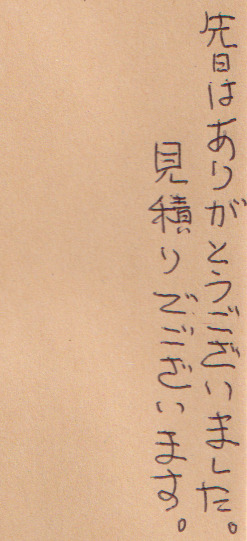 先日はありがとうございました。
見積りでございます。